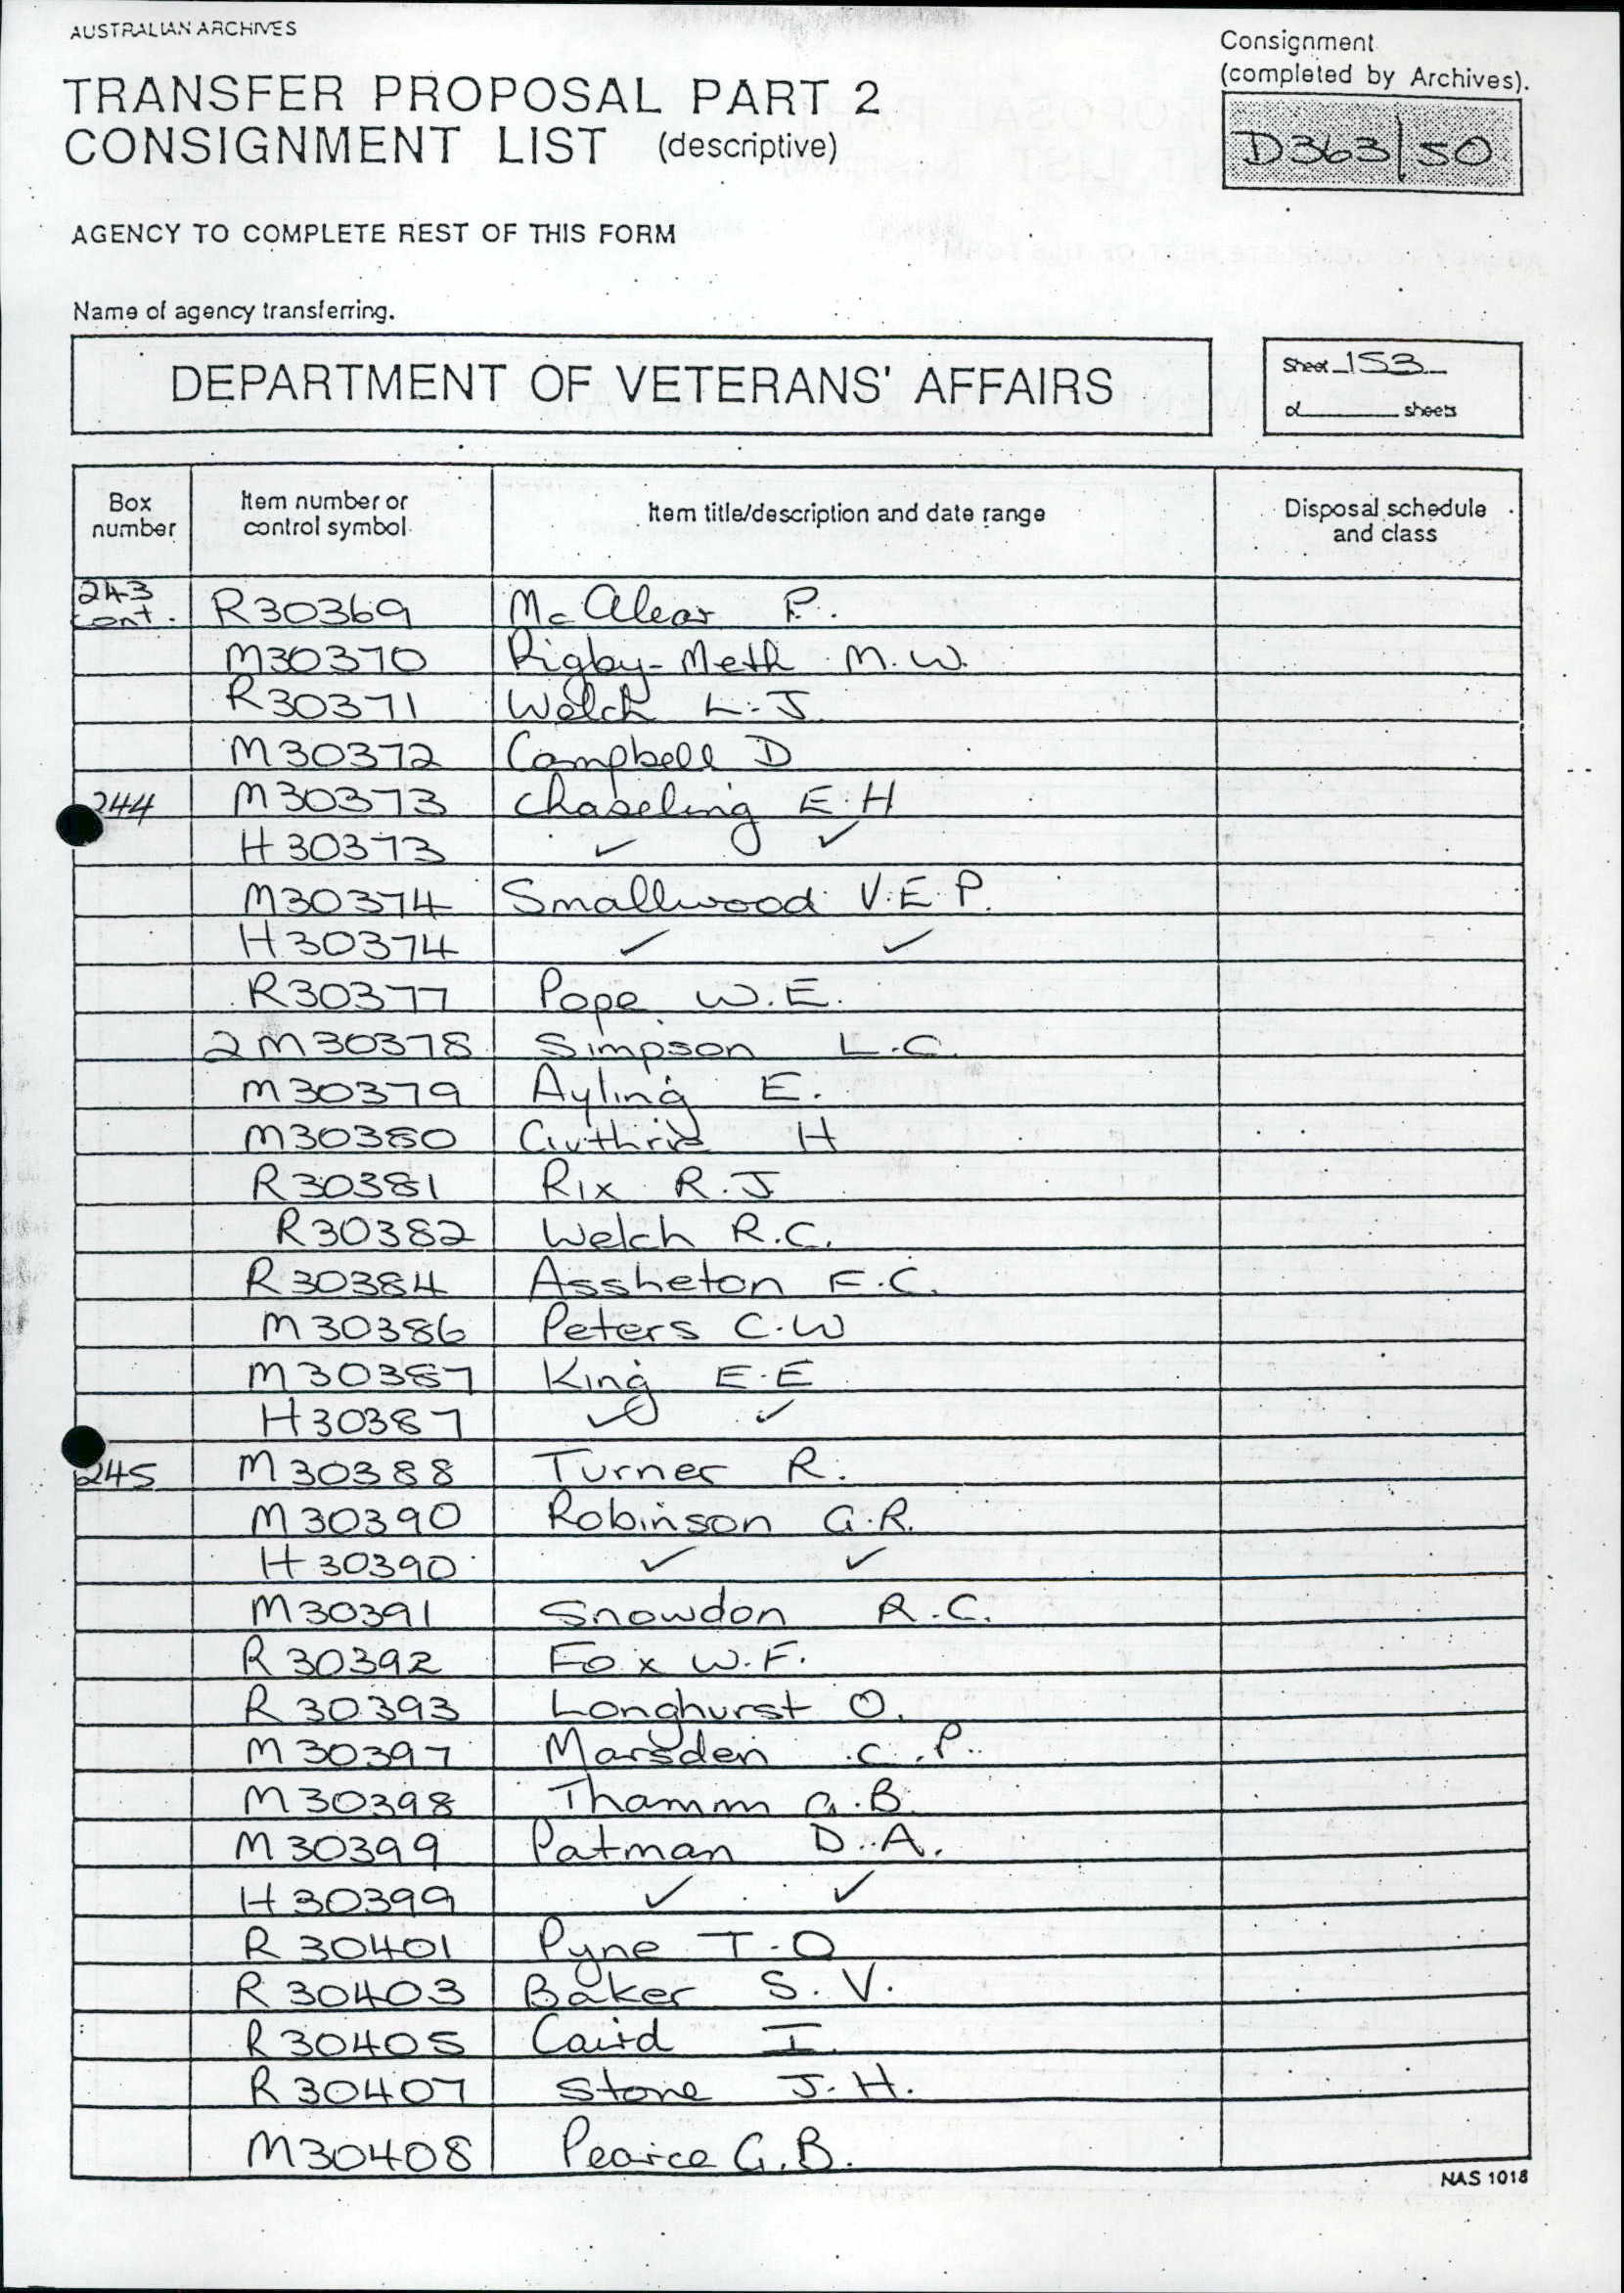 AUSTRALIAN ARCHIVES
Consignment
(completed by Archives).
TRANSFER PROPOSAL PART 2
CONSIGNMENT LIST (descriptive)
D363/50
AGENCY TO COMPLETE REST OF THIS FORM
Name of agency transferring.
DEPARTMENT OF VETERANS' AFFAIRS
Sheet 153
of ______ sheets
Box number
Item number or control symbol
Item title/description and date range
Disposal schedule and class
243 cont. R30369 McAlear P.
M30370 Rigby-Meth M.W.
R30371 Welch L.J
M30372 Campbell D
244 M30373 Chaseling E.H
H30373 ✓ ✓
M30374 Smallwood V.E.P.
H30374 ✓ ✓
R30377 Pope W.E.
2M30378 Simpson L.C.
M30379 Ayling E.
M30380 Guthrie H
R30381 Rix R.J
R30382 Welch R.C.
R30384 Assheton F.C.
M30386 Peters C.W
M30387 King E.E
H30387 ✓ ✓
245 M30388 Turner R.
M30390 Robinson G.R.
H30390 ✓ ✓
M30391 Snowdon R.C.
R30392 Fox W.F.
R30393 Longhurst O.
M30397 Marsden C.P.
M30398 Thamm G.B.
M30399 Patman D.A.
H30399 ✓ ✓
R30401 Pyne T.O
R30403 Baker S.V.
R30405 Caird I.
R30407 Stone J.H.
M30408 Pearce G.B.
NAS 1018